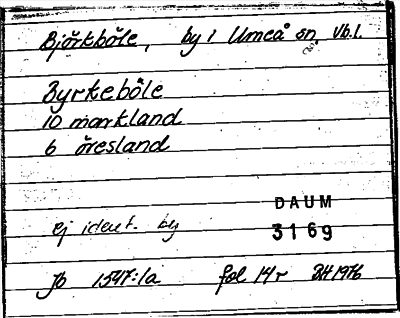 Björkböle, by i Umeå sn Vb.l.
Byrkeböle
10 markland
6 öresland
DAUM
ej ident. by 3169
Jb 1547:1a fol 14r 1976